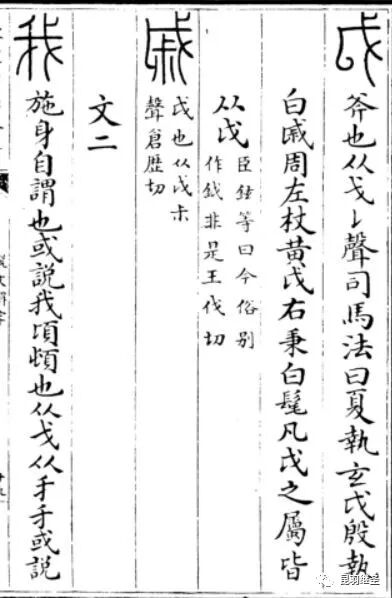 戉 斧也从戈𠄌聲司馬法曰夏執玄戉殷執
白戚周左杖黃戉右秉白髦凡戉之屬皆
从戉 臣鉉等曰今俗別
作鉞非是王伐切
戚 戉也从戉尗
聲倉歴切
文二
我 施身自謂也或說我頃頓也从戈从手手或說
昆羽继圣